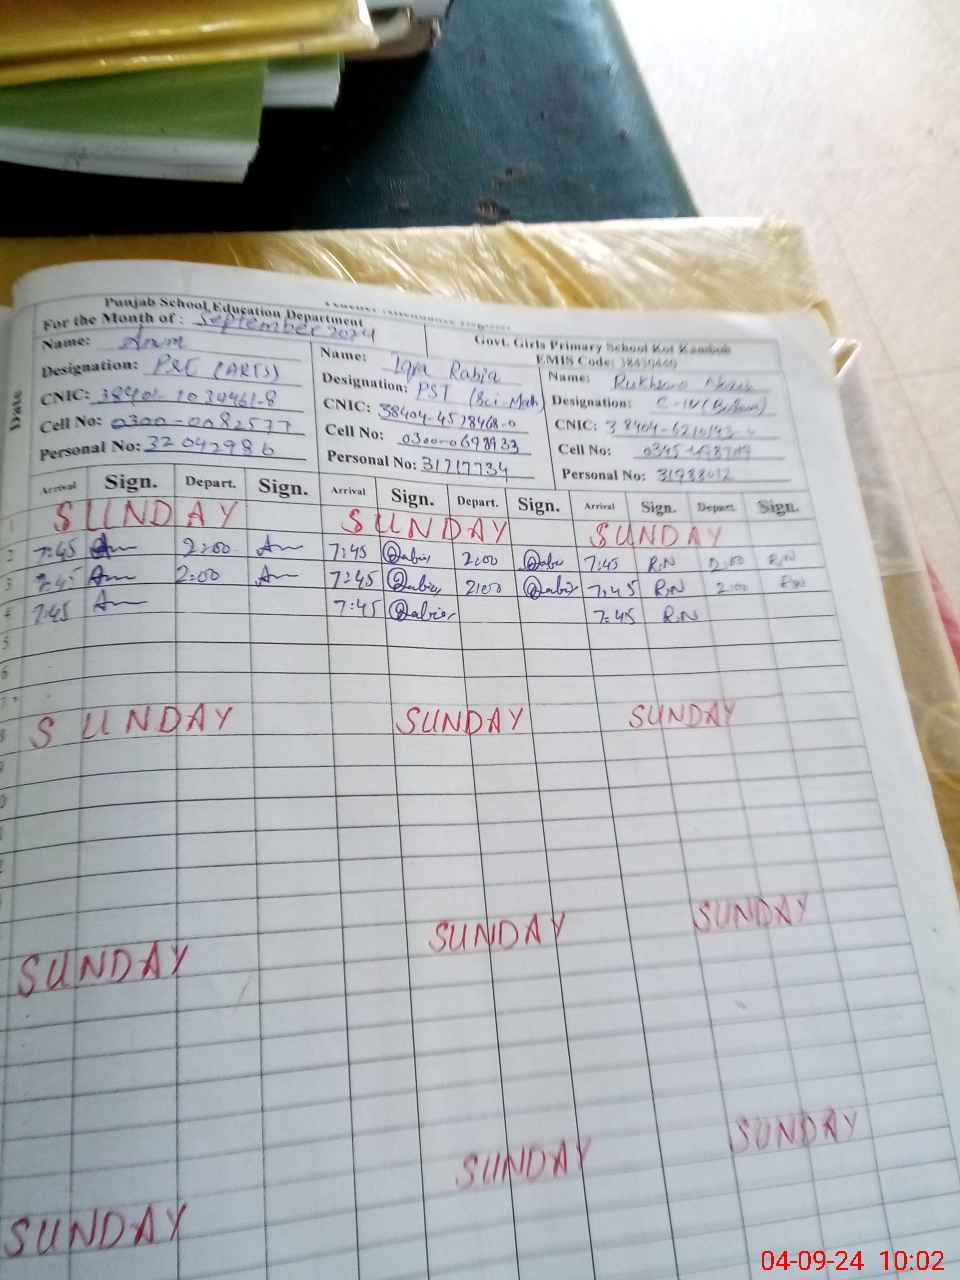 Punjab School Education Department
For the Month of : September 2024
Govt. Girls Primary School Kot Kamboh
EMIS Code:
Date
Name: Anum
Designation: (ARTS)
CNIC:
Cell No: 0300-0082577
Personal No: 32042986
Name: Iqra Rabia
Designation: PST (Sci-Math)
CNIC: 38404-4528468-0
Cell No: 0300-0698933
Personal No: 31717734
Name: Rukhsana
Designation: C-IV
CNIC:
Cell No:
Personal No:
Arrival Sign. Depart. Sign. Arrival Sign. Depart. Sign. Arrival Sign. Depart. Sign.
1 SUNDAY SUNDAY SUNDAY
2 7:45 2:00 7:45 Rabia 2:00 Rabia 7:45 R.N 2:00 R.N
3 7:45 2:00 7:45 Rabia 2:00 Rabia 7:45 R.N 2:00 R.N
4 7:45 7:45 Rabia 7:45 R.N
5
6
7
8 SUNDAY SUNDAY SUNDAY
SUNDAY SUNDAY SUNDAY
SUNDAY SUNDAY SUNDAY
04-09-24 10:02